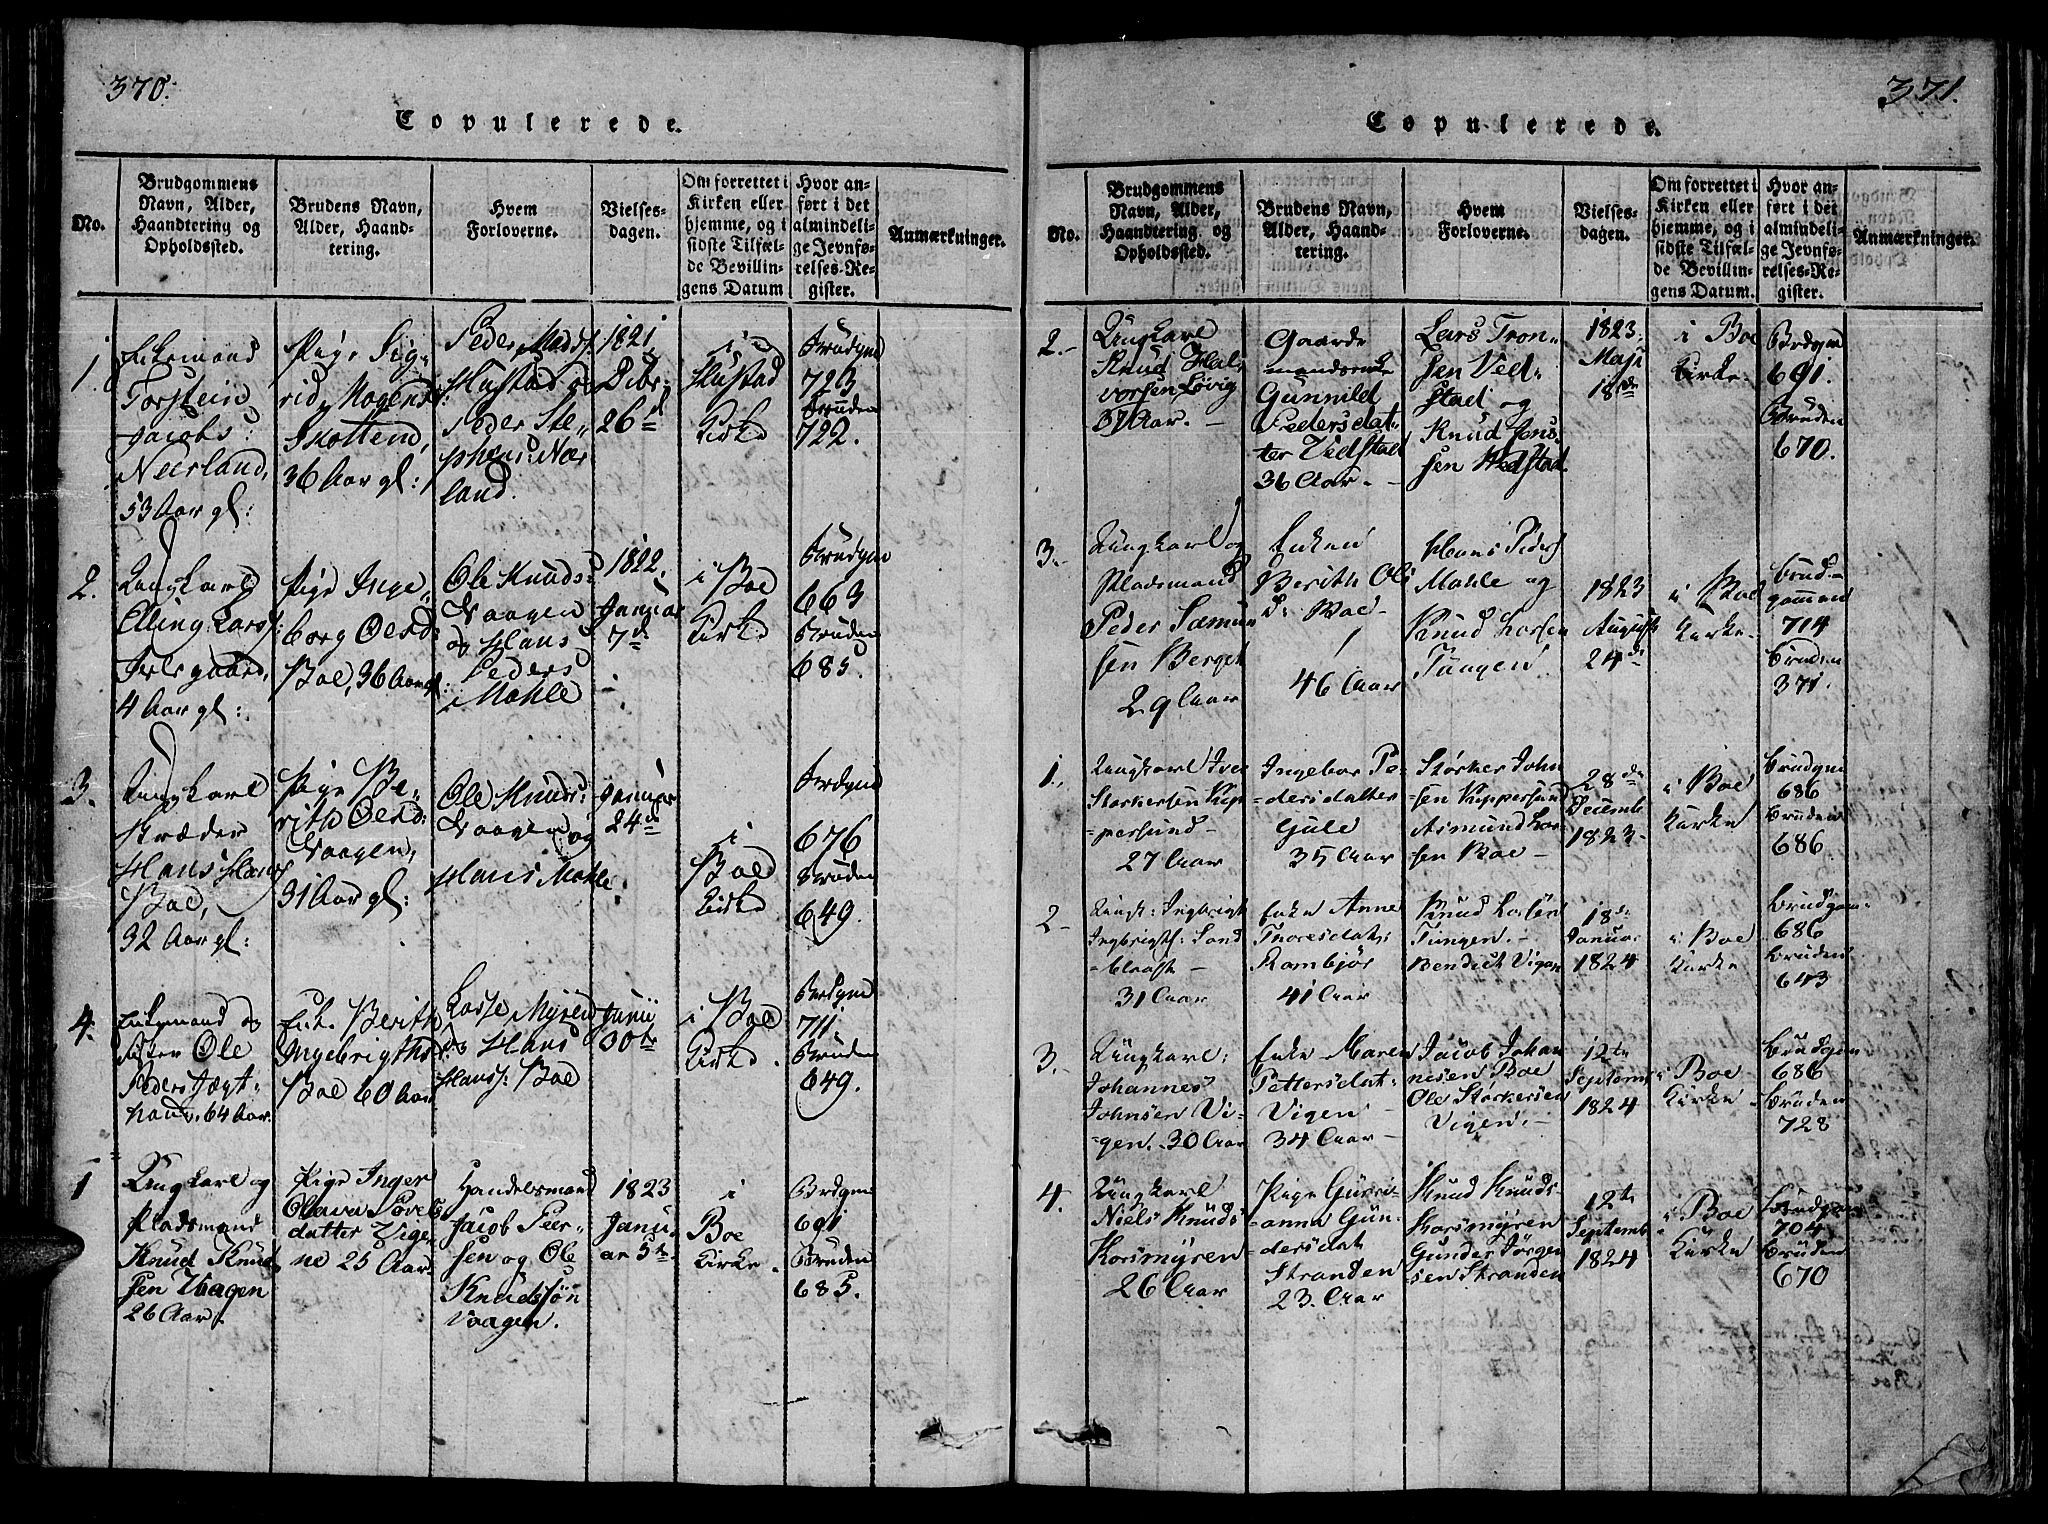 370.
Copulerede.
No.
Brudgommens
Navn, Alder,
Haandtering og
Opholdssted.
Brudens Navn,
Alder, Haand-
tering.
Hvem
Forloverne.
Vielses-
dagen.
Om forrettet i
Kirken eller
hjemme, og i
sidste Tilfæl-
de Bevillin-
gens Datum
Hvor an-
ført i det
almindeli-
ge Jevnfø-
relses-Re-
gister.
Anmærkninger.
1.
Enkemand
Torstein
Jacobs:
Neerland,
53 Aar gl:
Pige Sig-
rid Mogensd:
Skottend,
36 Aar gl:
Peder Mads:
Hustad og
Peder Ste-
phens: Nær
land.
1821
Dcbr
26d
i
Hustad
Kirke
Brudgm
723
Bruden
722.
2.
Ungkarl
Elling Larss:
gaard,
4 Aar gl:
Pige Inge-
borg Olesd:
Boe, 36 Aar gl:
Ole Knuds:
Vaagen
og Hans
Peders
Mahle
1822.
Januar
7d
i Boe
Kirke
Brudgm
663
Bruden
685.
3.
Ungkarl
Hans Hans:
Boe,
32 Aar gl:
Pige Be-
rith Olesd:
Vaagen,
31 Aar gl:
Ole Knuds:
Vaagen og
Hans Mahle
Januar
24de
i
Boe
Kirke
Brdgm
676
Bruden
649.
4.
Enkemand og
Ole
Peders:
64 Aar.
Enk. Berith
Ingebrigths
Boe 60 Aar
Lasse Myren
og Hans
Hanss: Boe
Junii
30te
i Boe
Kirke.
Brdgm
711.
Bruden
649.
1
Ungkarl og
Pladsmand
Knud Knud
sen Vaagen
26 Aar.
Pige Inger
Olava Povels
datter Vige
ne 25 Aar.
Handelsmand
Jacob Peer-
sen og Ole
Knudssøn
Vaagen.
1823
Janu-
ar 5te
i
Boe
Kirke.
Brdgm
691
Bruden
685.
371.
Copulerede.
No.
Brudgommens
Navn, Alder,
Haandtering og
Opholdssted.
Brudens Navn,
Alder, Haand-
tering.
Hvem
Forloverne.
Vielses-
dagen.
Om forrettet i
Kirken eller
hjemme, og i
sidste Tilfæl-
de Bevillin-
gens Datum.
Hvor an-
ført i det
almindeli-
ge Jevnfø-
relses-Re-
gister.
Anmærkninger.
2.-
Ungkarl
Knud Hal-
vorsen Løvig
37 Aar. -
Gaard
mandsenke
Gunnild
Pedersdat-
ter Vedstad
36 Aar. -
Lars Tron-
sen Ved-
stad og
Knud Jons-
sen Vedstad.
1823
Maji
18de
i Boe
Kirke.
Brdgm
691.
Bruden
670.
3.-
Ungkarl og
Pladsmand
Peder Sæmun
sen Berget
29 Aar
Enken
Berith Ols
d: Boe-
46 Aar
Hans Peders
Mahle og
Knud Larsen
Tangen
1823
August
24de
i Boe
Kirke.
Brud-
gommen
714
Bruden
371.
1.
Ungkarl Iver
Størkersen Kip-
persund-
27 Aar
Ingebor Pe-
dersdatter
Gule
35 Aar
Størker John
sen Kippersund
Asmund Lar-
sen Boe -
28de
Decemb
1823-
i Boe
Kirke
Brudgm
686
Bruden
686.
2-
Ungk: Ingbrigt
Ingbrigts: Sand
-
31 Aar
Enke Anne
Thoresdat:
Rambjør
41 Aar
Knud Larsen
Tungen.-
Bendick Vigen
18de
Januar
1824
i Boe
Kirke
Brudgom
686
Bruden
643
3.
Ungkarl:
Johannes
Johnsen Vi-
gen.-30 Aar
Enke Maren
Pettersdat-
Vigen
34 Aar-
Jacob Johan
nesen Boe
Ole Størkersen
Vigen.-
12te
Septemb
1824
i Boe
Kirke
Brudgm
686
Bruden
728
4.
Ungkarl
Niels Knuds:
Korsmyren
26 Aar
Pige Gurri-
anna Gun-
dersdat
Stranden
23. Aar
Knud Knuds-
Korsmyren
Gunder Jørgen
sen Stranden
12te
Septemb
1824
i Boe
Kirke
Brudgm
704
Bruden
670